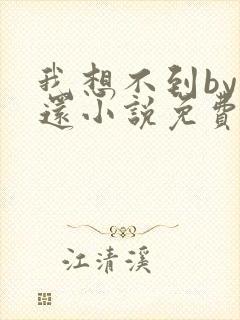 我想不到by
還小説免費
江清溪